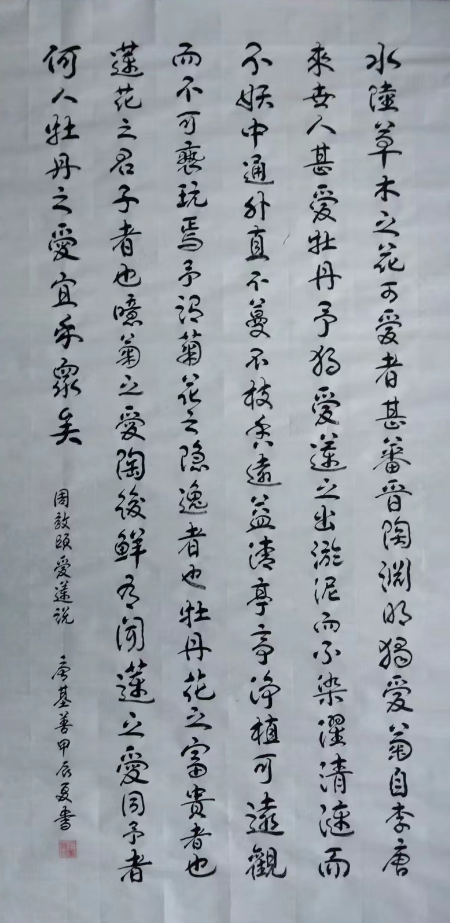 水陸草木之花可愛者甚蕃晉陶淵明獨愛菊自李唐
來世人甚愛牡丹予獨愛蓮之出淤泥而不染濯清漣而
不妖中通外直不蔓不枝香遠益清亭亭淨植可遠觀
而不可褻玩焉予謂菊花之隱逸者也牡丹花之富貴者也
蓮花之君子者也噫菊之愛陶後鮮有聞蓮之愛同予者
何人牡丹之愛宜乎衆矣
周敦頤愛蓮說 唐基善甲辰夏書